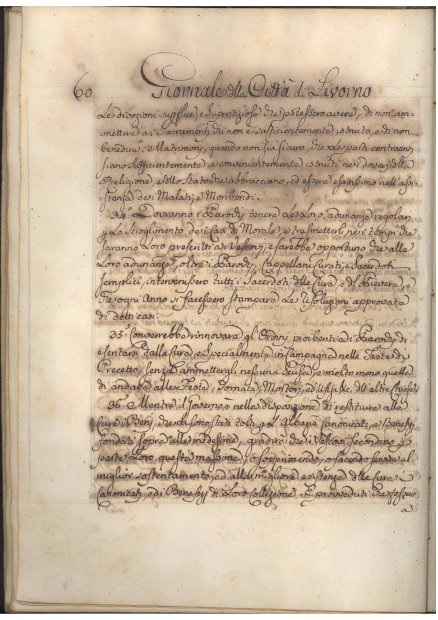 60 Giornale della Città di Livorno
Le divozioni superflue, e Superstiziose che potessero avere, di non am-
mettere ai Sacramenti chi non è sufficientemente istruito, e di non
benedire i Matrimonj, quando non sia sicuro, che le parti contraenti
siano sufficientemente e convenientemente istruite nei doveri della
Religione, e dello Stato che abbracciano, ed essere esattissimo nell'assi-
stenza dei Malati, e Moribondi.
34.° Dovranno i Parochi tenere le loro adunanze regolari
p Lo Scioglimento dei Casi di Morale, e trasmetterli nei tempi che
saranno Loro prescritti ai Vescovi, e sarebbe opportuno che alle
Loro adunanze, oltre i Parochi, Cappellani Curati, e Sacerdoti
semplici, intervenissero tutti i Sacerdoti della Cura, e di Pievere, e
che ogni Anno si facessero stampare le resoluzioni approvate
di detti casi
35.° Converrebbe rinnovare gl'Ordini proibenti ai Parochi di
esentarsi dalla Cura, e specialmente in Campagna nelle Feste di
Precetto, senza ammettergli nessuna Scusa, e molto meno quella
di andare alle Feste, Tornate, Mortorj, ed Ufizj, di altre Chiese
36.° Mentre il Governo è nella disposizione di restituire alle
Cure i Beni, che sono stati tolti p l'Albagie Canonicati, e Benefizj
fondati sopra alle medesime, gradirà che i Vescovi secondino p
parte Loro questa massima, o sopprimendo, o facendo servire al
miglior sostentamento, ed alla migliore esistenza delle Cure i
Canonicati, ed i Benefizj di Loro Collazione, i provveduti